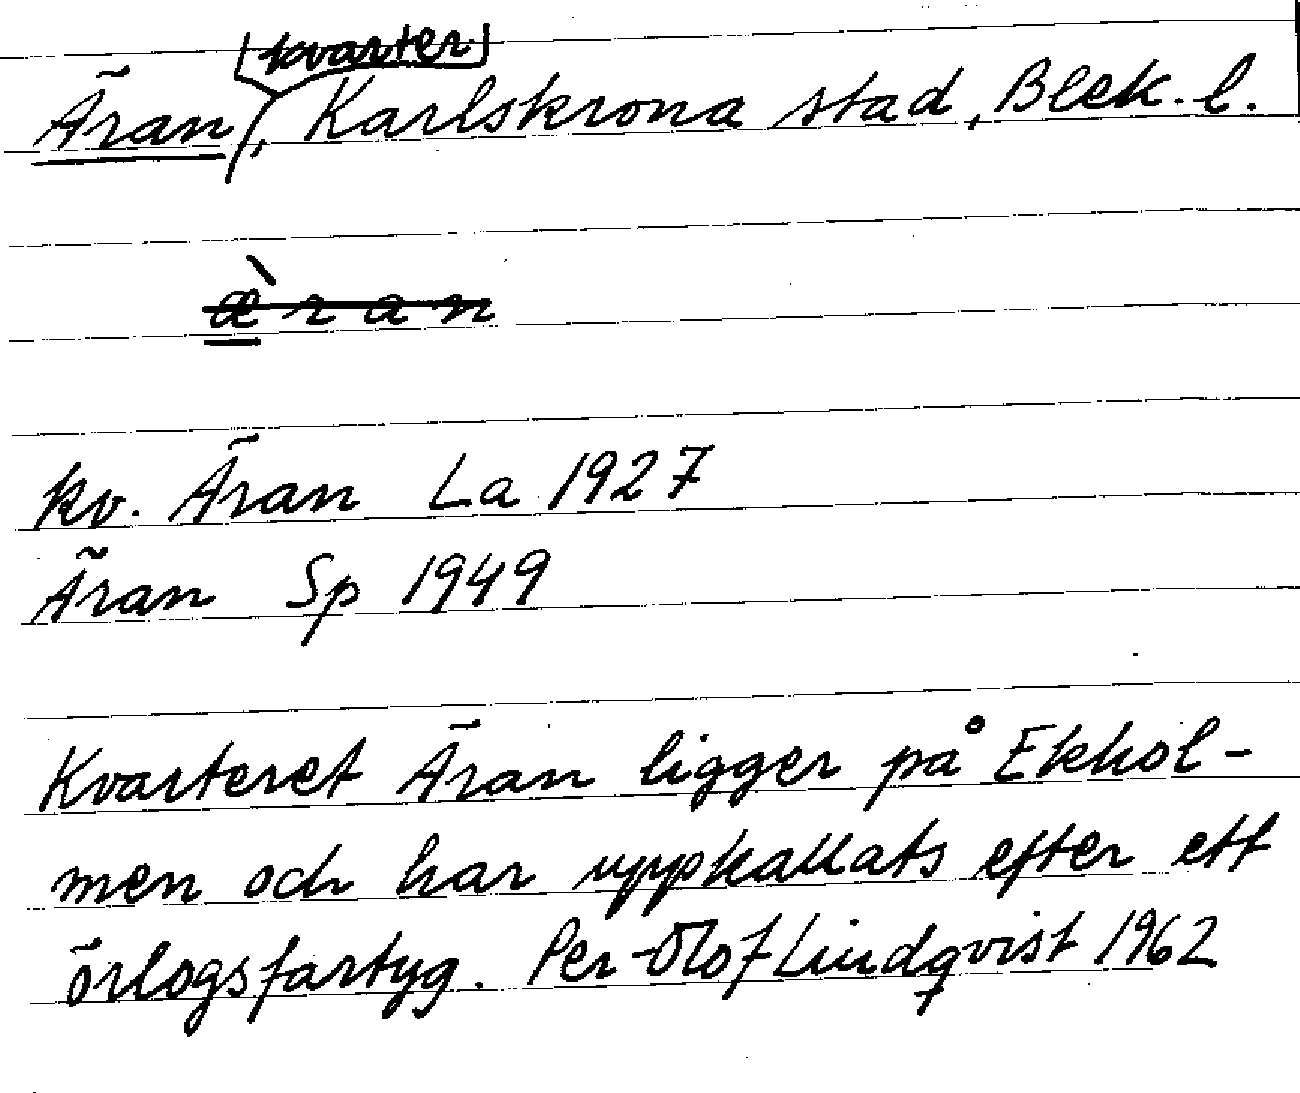 Äran, [kvarter] Karlskrona stad, Blek. l.
æ̀ran
kv. Äran La 1927
Äran Sp 1949
Kvarteret Äran ligger på Ekhol-
men och har uppkallats efter ett
örlogsfartyg. Per-Olof Lindqvist 1962